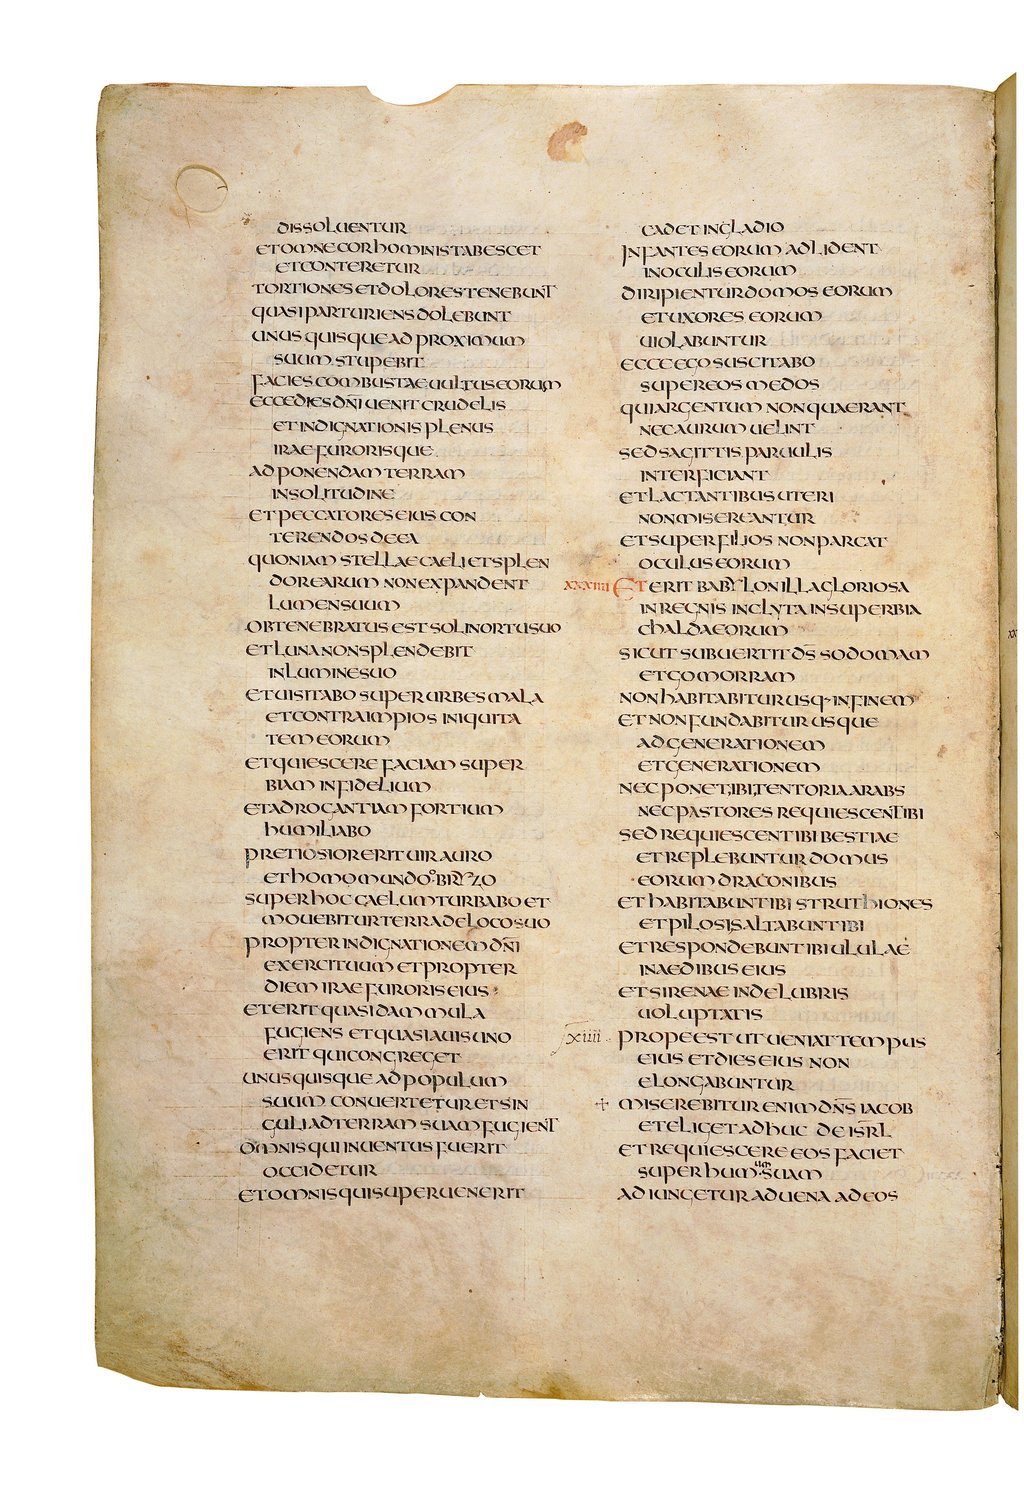 DISSOLUENTUR
ETOMNECORHOMINISTABESCET
ETCONTERETUR
TORTIONESETDOLORESTENEBUNT
QUASIPARTURIENSDOLEBUNT
UNUSQUISQUEADPROXIMUM
SUUMSTUPEBIT
FACIESCOMBUSTAEUULTUSEORUM
ECCEDIESDN̄IUENITCRUDELIS
ETINDIGNATIONISPLENUS
IRAEFURORISQUE
ADPONENDAMTERRAM
INSOLITUDINE
ETPECCATORESEIUSCON
TERENDOSDEEA
QUONIAMSTELLAECAELIETSPLEN
DOREARUMNONEXPANDENT
LUMENSUUM
OBTENEBRATUSESTSOLINORTUSUO
ETLUNANONSPLENDEBIT
INLUMINESUO
ETUISITABOSUPERURBESMALA
ETCONTRAIMPIOSINIQUITA
TEMEORUM
ETQUIESCEREFACIAMSUPER
BIAMINFIDELIUM
ETADROGANTIAMFORTIUM
HUMILIABO
PRETIOSIORERITUIRAURO
ETHOMOMUNDOOBRYZO
SUPERHOCCAELUMTURBABOET
MOUEBITURTERRADELOCOSUO
PROPTERINDIGNATIONEMDN̄I
EXERCITUUMETPROPTER
DIEMIRAEFURORISEIUS
ETERITQUASIDAMMULA
FUGIENSETQUASIAUISUNO
ERITQUICONGREGET
UNUSQUISQUEADPOPULUM
SUUMCONUERTETURETSIN
GULIADTERRAMSUAMFUGIENT
OMNISQUIINUENTUSFUERIT
OCCIDETUR
ETOMNISQUISUPERUENERIT
CADETINGLADIO
INFANTESEORUMADLIDENT
INOCULISEORUM
DIRIPIENTURDOMOSEORUM
ETUXORESEORUM
UIOLABUNTUR
ECCEEGOSUSCITABO
SUPEREOSMEDOS
QUIARGENTUMNONQUAERANT
NECAURUMUELINT
SEDSAGITTISPARUULIS
INTERFICIANT
ETLACTANTIBUSUTERI
NONMISEREANTUR
ETSUPERFILIOSNONPARCAT
OCULUSEORUM
XXXIIII ETERITBABYLONILLAGLORIOSA
INREGNISINCLYTAINSUPERBIA
CHALDAEORUM
SICUTSUBUERTITD̄SSODOMAM
ETGOMORRAM
NONHABITABITURUSQ·INFINEM
ETNONFUNDABITURUSQUE
ADGENERATIONEM
ETGENERATIONEM
NECPONETIBITENTORIAARABS
NECPASTORESREQUIESCENTIBI
SEDREQUIESCENTIBIBESTIAE
ETREPLEBUNTURDOMUS
EORUMDRACONIBUS
ETHABITABUNTIBISTRUTHIONES
ETPILOSISALTABUNTIBI
ETRESPONDEBUNTIBIULULAE
INAEDIBUSEIUS
ETSIRENAEINDELUBRIS
UOLUPTATIS
XIIII PROPEESTUTUENIATTEMPUS
EIUSETDIESEIUSNON
ELONGABUNTUR
+ MISEREBITURENIMDN̄SIACOB
ETELIGETADHUCDEISR̄L
ETREQUIESCEREEOSFACIET
SUPERHUMUMSUAM
ADIUNGETURADUENAADEOS